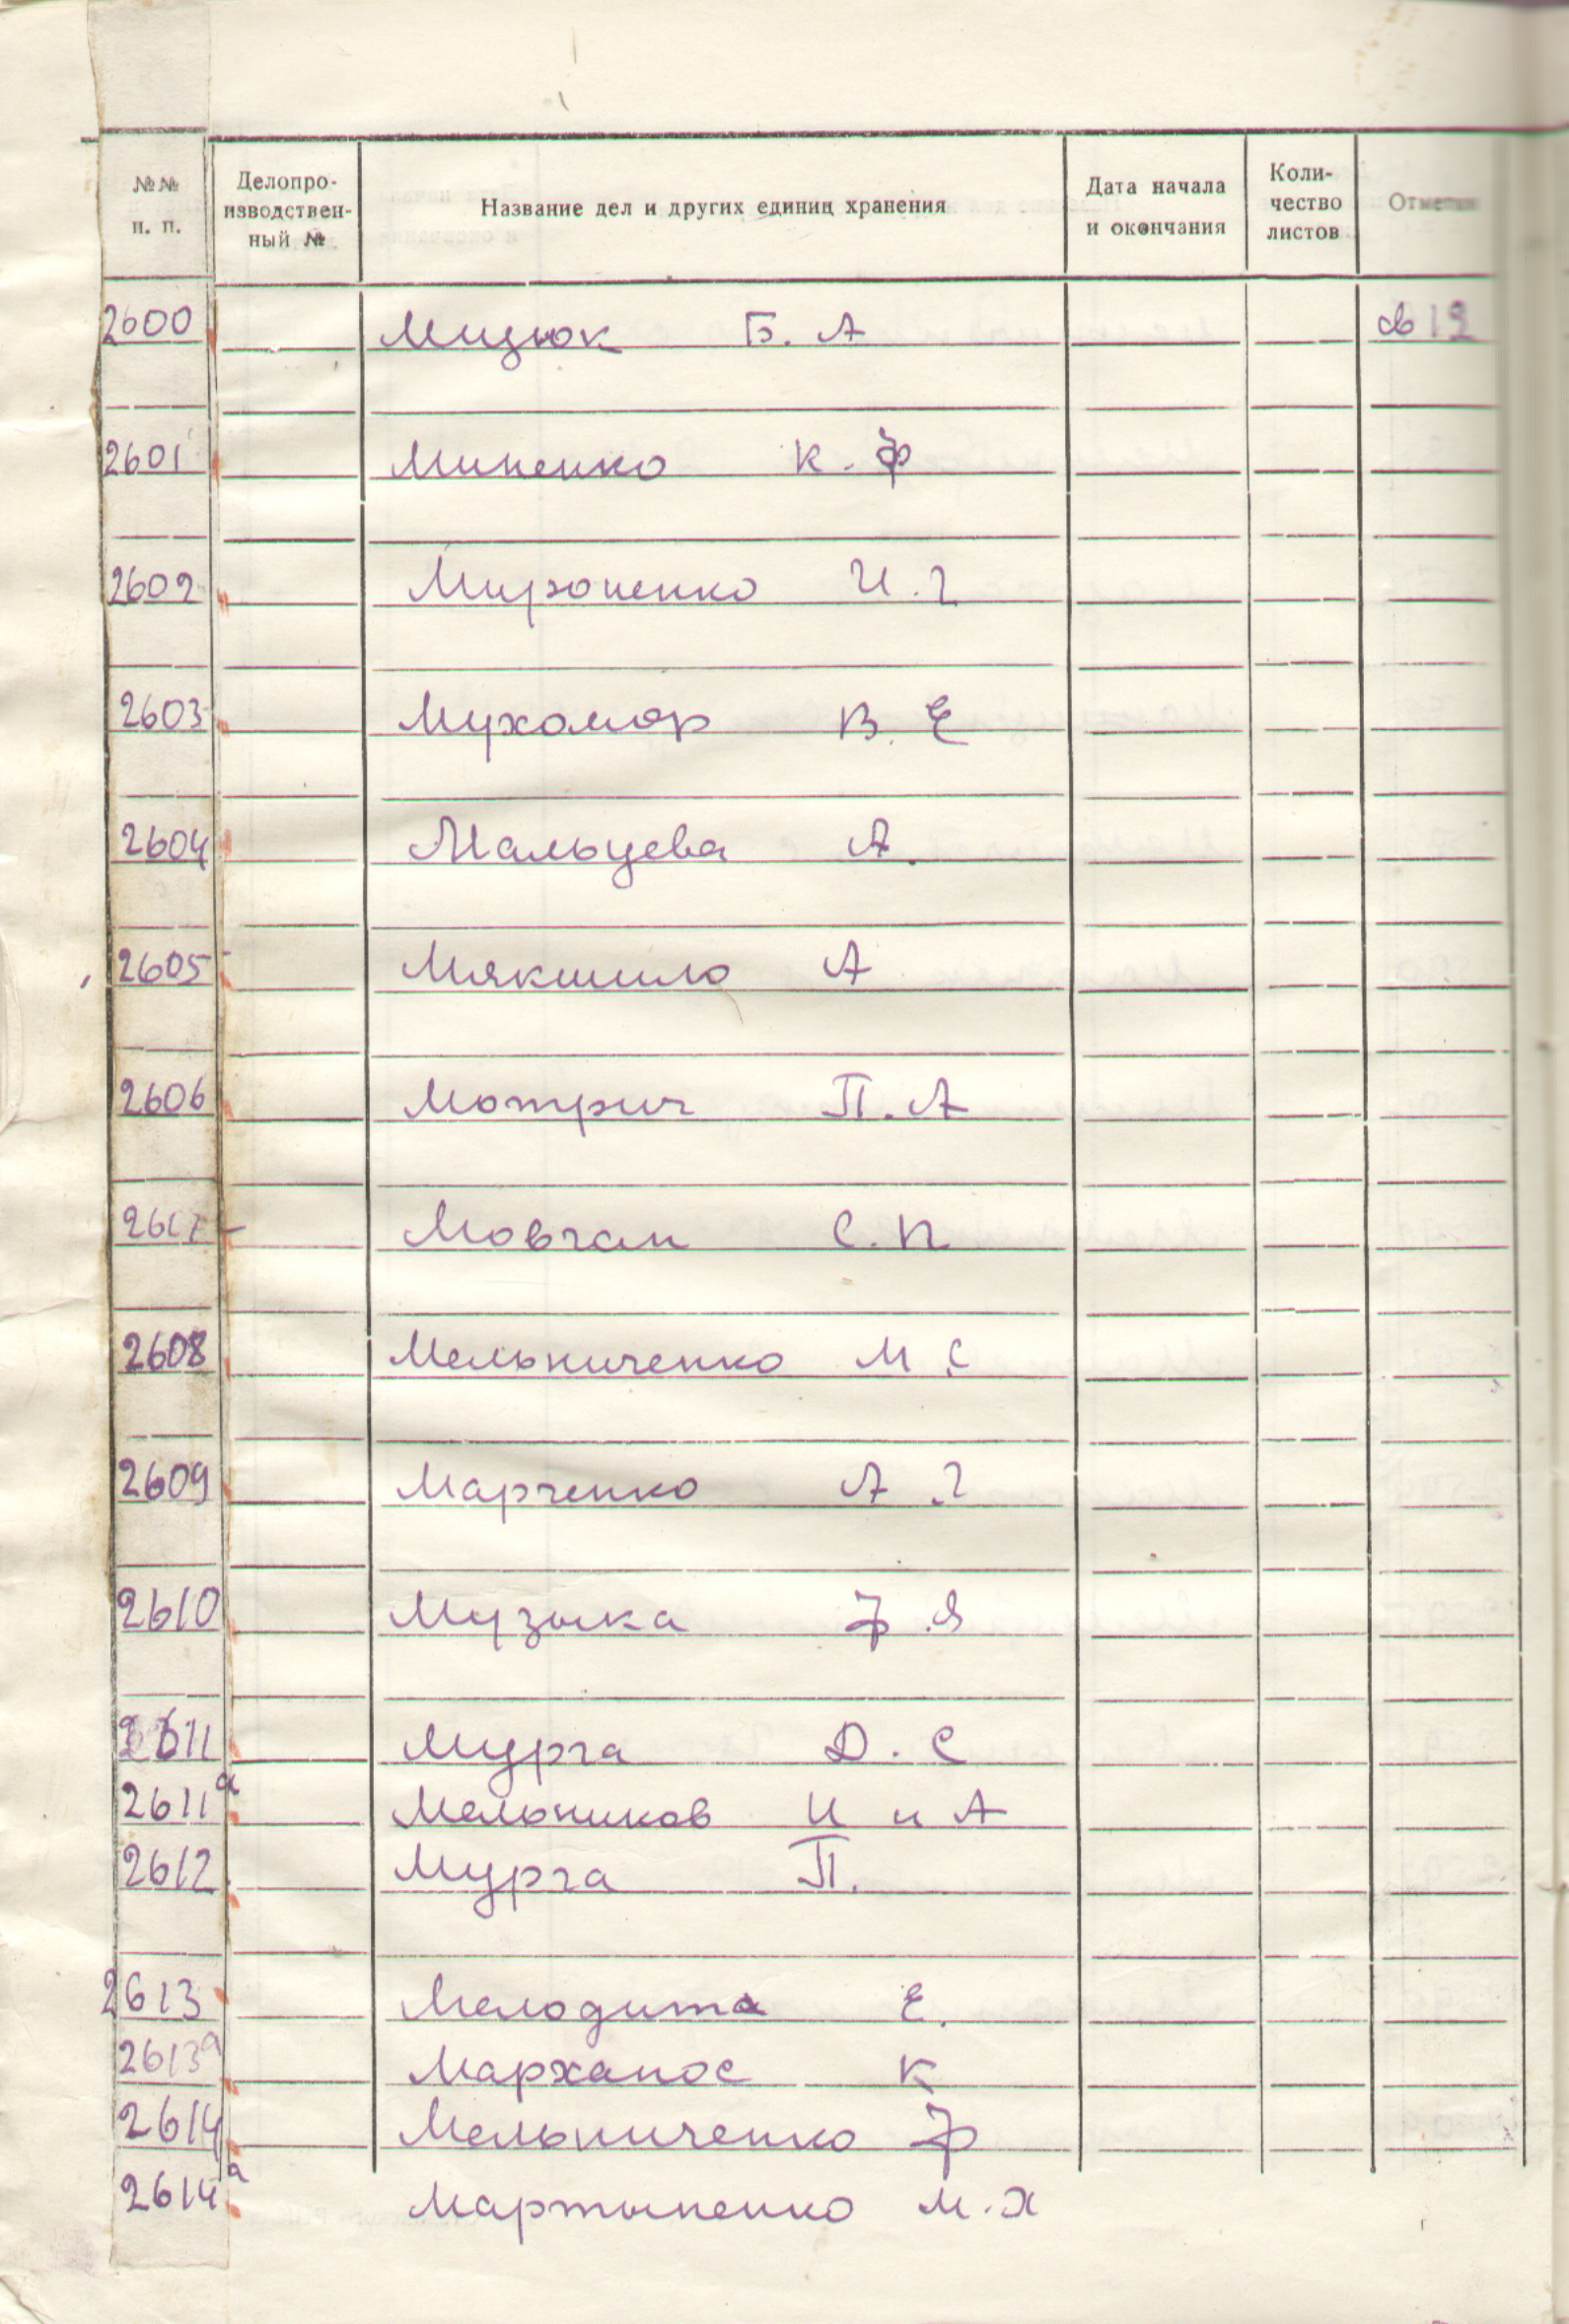 №№ п. п. Делопроизводственный № Название дел и других единиц хранения Дата начала и окончания Количество листов Отметки
2600 Мицюк Б. А св 19
2601 Миненко К. Ф
2602 Мироненко И. Г
2603 Мухомор В. Е
2604 Мальцева А.
2605 Мякшило А
2606 Мотрич П. А
2607 Мовчан С. П
2608 Мельниченко М. С
2609 Марченко А. Г
2610 Музыка Ф. Я
2611 Мурга Д. С
2611а Мельников И и А
2612 Мурга П.
2613 Мелодита Е.
2613а Марханос К
2614 Мельниченко Ф
2614а Мартыненко М. Х